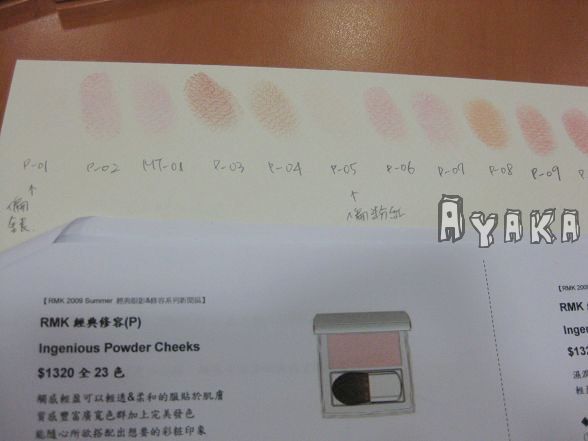 P-01 P-02 MT-01 P-03 P-04 P-05 P-06 P-07 P-08 P-09 P
↑ ↑
偏 偏粉紅
銀
AYAKA
【RMK 2009 Summer 經典眼影&修容系列新聞稿】
RMK 經典修容(P)
Ingenious Powder Cheeks
$1320 全 23 色
觸感輕盈可以輕透&柔和的服貼於肌膚
質感豐富廣寬色群加上完美發色
能隨心所欲搭配出想要的彩粧印象
【RMK 2009
RMK
Inge
$132
濕潤
輕盈